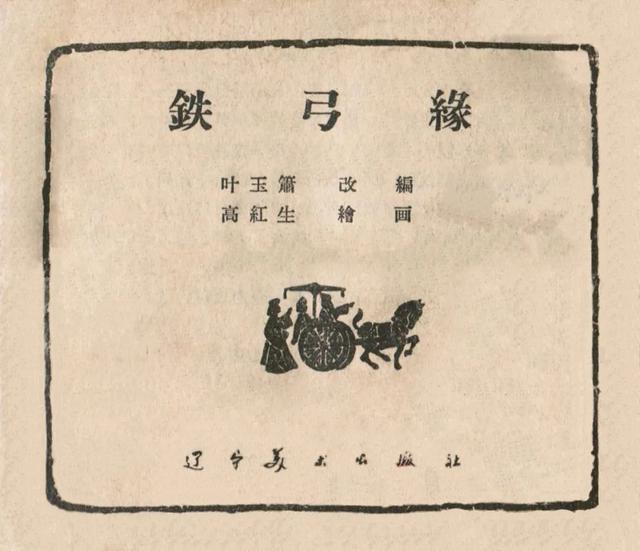 鉄弓緣
叶玉簫 改編
高紅生 繪画
辽宁美术出版社